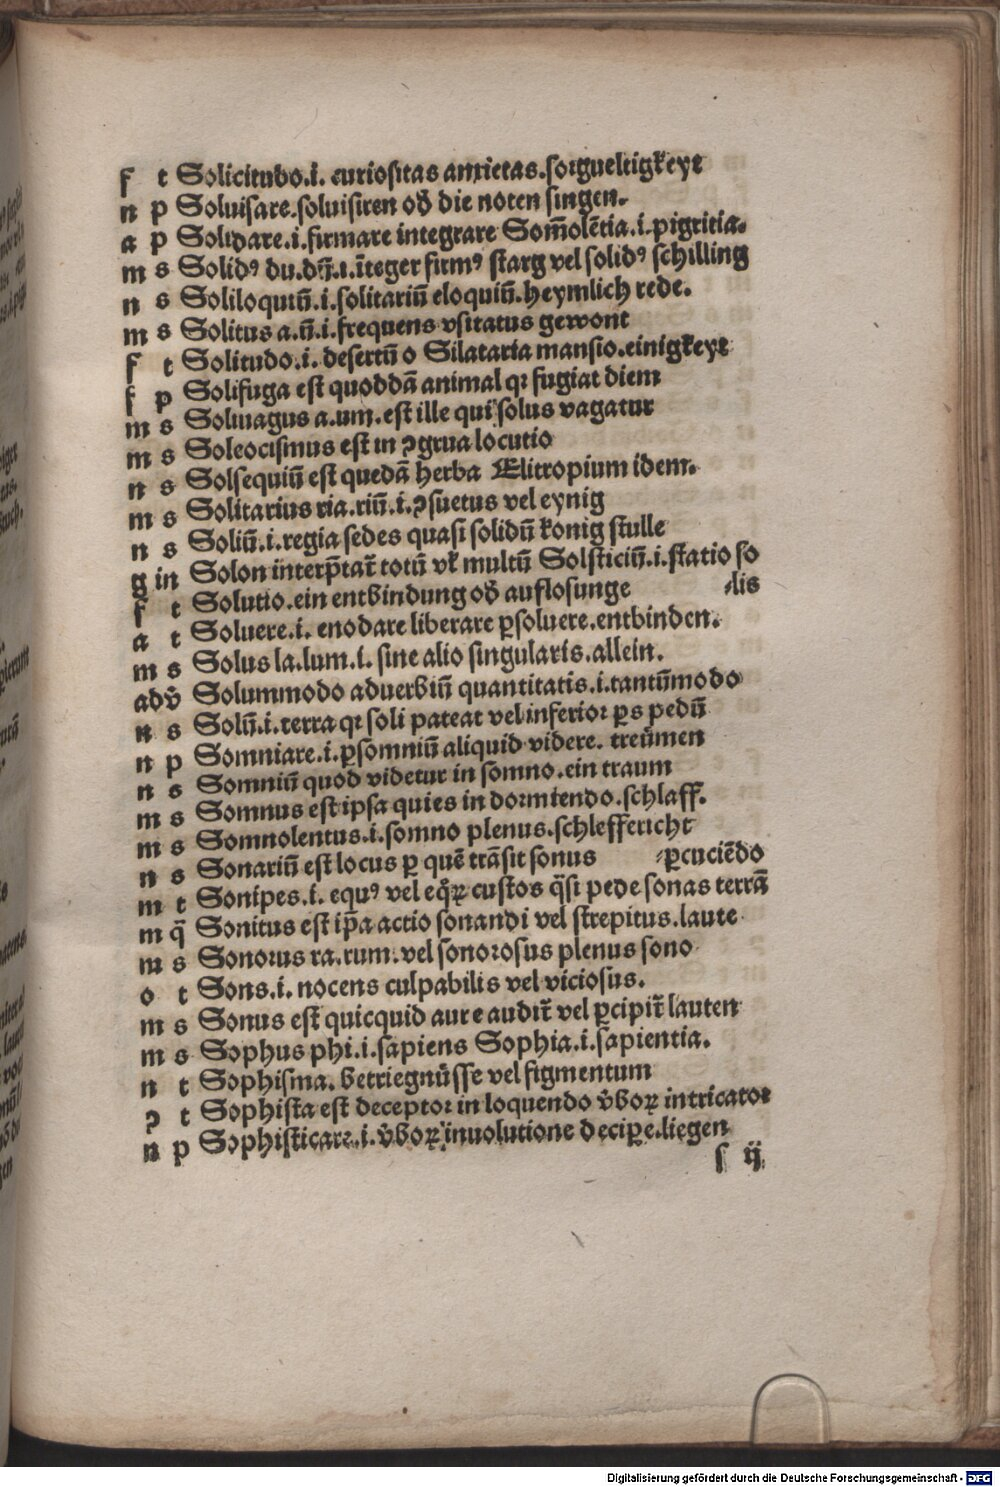 f t Solicitudo.i. curiositas anxietas.sorgueltigkeyt
n p Soluisare.soluisiren od̕ die noten singen.
a p Solidare.i.firmare integrare Som̄olētia.i.pigritia.
m s Solidꝰ du.dū.i.īteger firmꝰ starg vel solidꝰ schilling
n s Soliloquiū.i.solitariū eloquiū.heymlich rede.
m s Solitus a.ū.i.frequens vsitatus gewont
f t Solitudo.i.desertū o Silataria mansio.einigkeyt
f p Solifuga est quoddā animal qꝛ fugiat diem
m s Soliuagus a.um.est ille qui solus vagatur
m s Soleocismus est in ꝯgrua locutio
n s Solsequiū est quedā herba Elitropium idem.
m s Solitarius ria.riū.i.ꝯsuetus vel eynig
n s Soliū.i.regia sedes quasi solidū konig stulle
g in Solon interp̄tat̄ totū vł multū Solsticiū.i.statio so
f t Solutio.ein entbindung od̕ auflosunge ⸗lis
a t Soluere.i. enodare liberare ꝑsoluere.entbinden.
m s Solus la.lum.i. sine alio singularis.allein.
adv̄ Solummodo aduerbiū quantitatis.i.tantūmodo
n s Solū.i.terra qꝛ soli pateat vel inferior ꝑs pedū
n p Somniare.i.ꝑsomniū aliquid videre. treümen
n s Somniū quod videtur in somno.ein traum
m s Somnus est ipsa quies in dormiendo.schlaff.
m s Somnolentus.i.somno plenus.schleffericht
n s Sonariū est locus ꝑ quē trāsit sonus ⸗ꝑcuciēdo
m t Sonipes.i. equꝰ vel eq̊ꝝ custos q̄si pede sonas terrā
m q̄ Sonitus est ip̄a actio sonandi vel strepitus.laute
m s Sonorus ra.rum.vel sonorosus plenus sono
o t Sons.i. nocens culpabilis vel viciosus.
m s Sonus est quicquid aure audit̄ vel ꝑcipit̄ lauten
m s Sophus phi.i.sapiens Sophia.i.sapientia.
n t Sophisma. betriegnüsse vel figmentum
ꝯ t Sophista est deceptor in loquendo v̄boꝝ intricator
n p Sophisticare.i.v̄boꝝ inuolutione deciꝑe.liegen
s ij
Digitalisierung gefördert durch die Deutsche Forschungsgemeinschaft - DFG